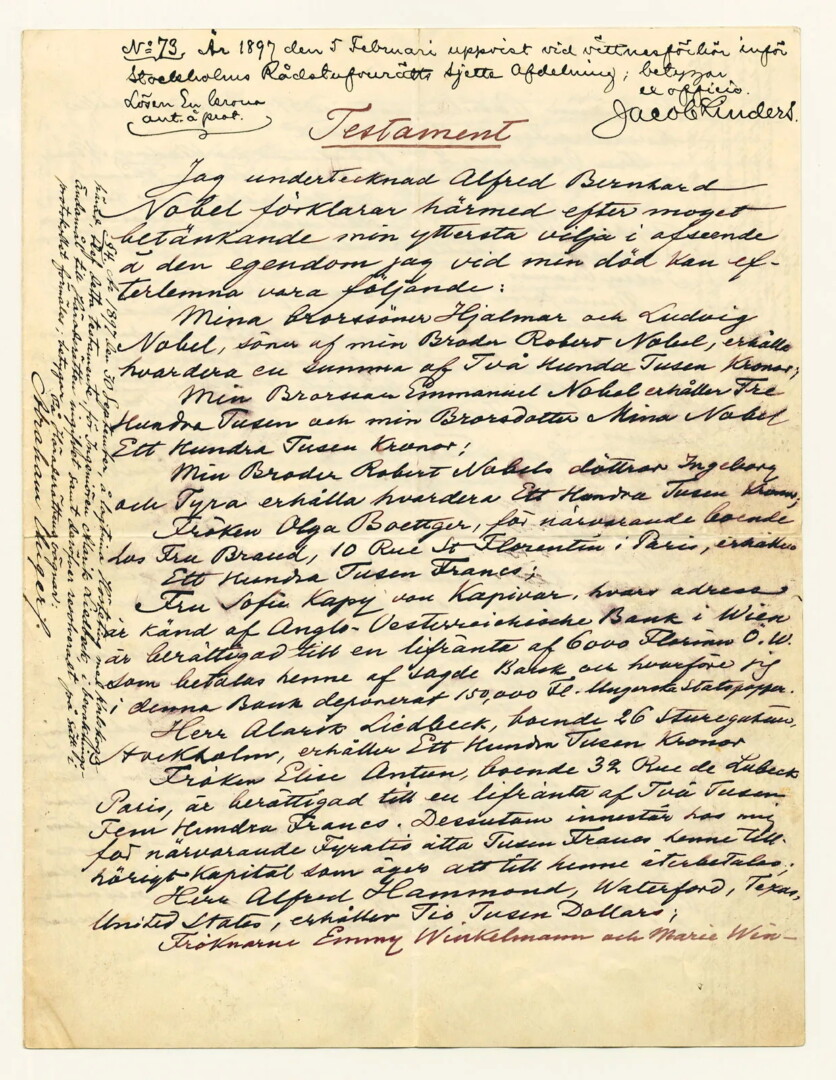 No 73. År 1897 den 5 Februari uppvist vid vittnesförhör inför
Stockholms Rådstufvurätts Sjette Afdelning; betygar
ex officio.
Lösen En krona
ant. å prot.
Jacob Linders.
Testament
Jag undertecknad Alfred Bernhard
Nobel förklarar härmed efter moget
betänkande min yttersta vilja i afseende
å den egendom jag vid min död kan ef-
terlemna vara följande:
Mina Brorssöner Hjalmar och Ludvig
Nobel, söner af min Broder Robert Nobel, erhålla
hvardera en summa af Två Hundra Tusen Kronor;
Min Brorsson Emmanuel Nobel erhåller Tre
Hundra Tusen och min Brorsdotter Mina Nobel
Ett Hundra Tusen Kronor;
Min Broder Robert Nobels döttrar Ingeborg
och Tyra erhålla hvardera Ett Hundra Tusen Kronor;
Fröken Olga Boettger, för närvarande boende
hos Fru Brand, 10 Rue St Florentin i Paris, erhåller
Ett Hundra Tusen Francs;
Fru Sofie Kapy von Kapivar, hvars adress
är känd af Anglo-Oesterreichische Bank i Wien
är berättigad till en lifränta af 6000 Florins Ö.W.
som betalas henne af sagde Bank och hvarföre jag
i denna Bank deponerat 150,000 Fl. i Ungerska Statspapper.
Herr Alarik Liedbeck, boende 26 Sturegatan,
Stockholm, erhåller Ett Hundra Tusen Kronor
Fröken Elise Antun, boende 32 Rue de Lubeck
Paris, är berättigad till en lifränta af Två Tusen
Fem Hundra Francs. Dessutom innestår hos mig
för närvarande Fyratio åtta Tusen Francs henne till-
hörigt Kapital som äger att till henne återbetalas;
Herr Alfred Hammond, Waterford, Texas,
United States, erhåller Tio Tusen Dollars;
Fröknarne Emmy Winkelmann och Marie Win-
År 1897 den 30 September, å lagtima Hösteting med Karlskoga
härad, blef detta testamente, för Ingeniören Alarik Liedbeck, i bevaknings-
ändamål till Häradsrätten ingifvet samt derefter
protokollet förmäler; betygar
På Häradsrättens vägnar:
Abraham Unger.